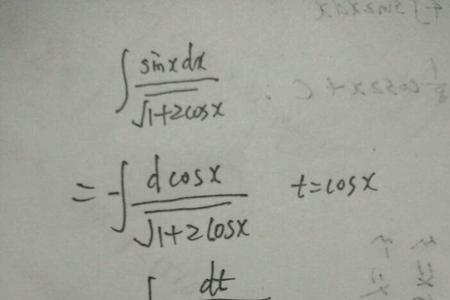 ∫ sinxdx / √(1+2cosx)
= -∫ dcosx / √(1+2cosx) t=cosx
∫ dt